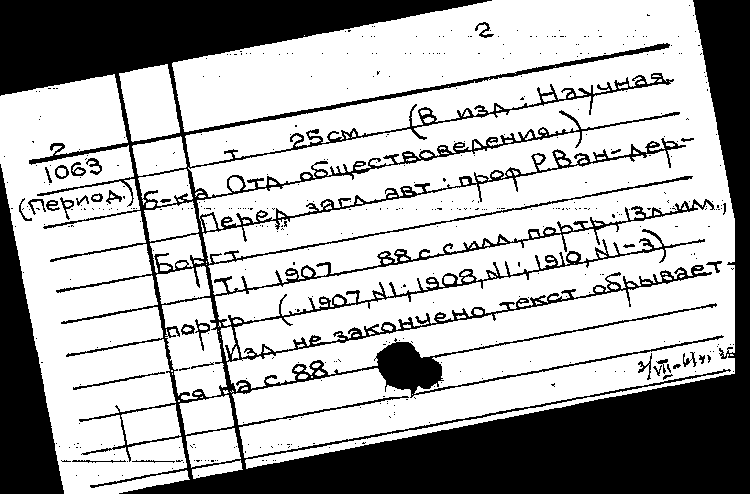 2
2
1063
(Период.)
т 25 см. (В изд.: Научная
б-ка. Отд. обществоведения...)
Перед загл. авт.: проф Р. Ван-дер-
Боргт.
Т.1 1907 88 с. с илл., портр.; 13 л. илл.,
портр (...1907, N1; 1908, N1; 1910, N1-3)
Изд. не закончено, текст обрывает-
ся на с. 88.